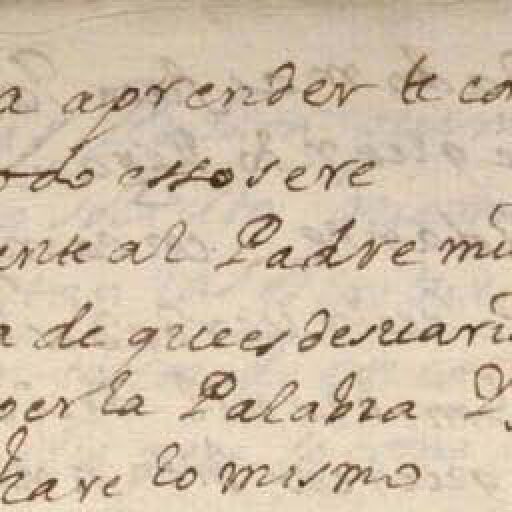 a aprender te co
odo esso sere
ente al Padre mi
a de que es desuari
per la Palabra Y
hare lo mismo